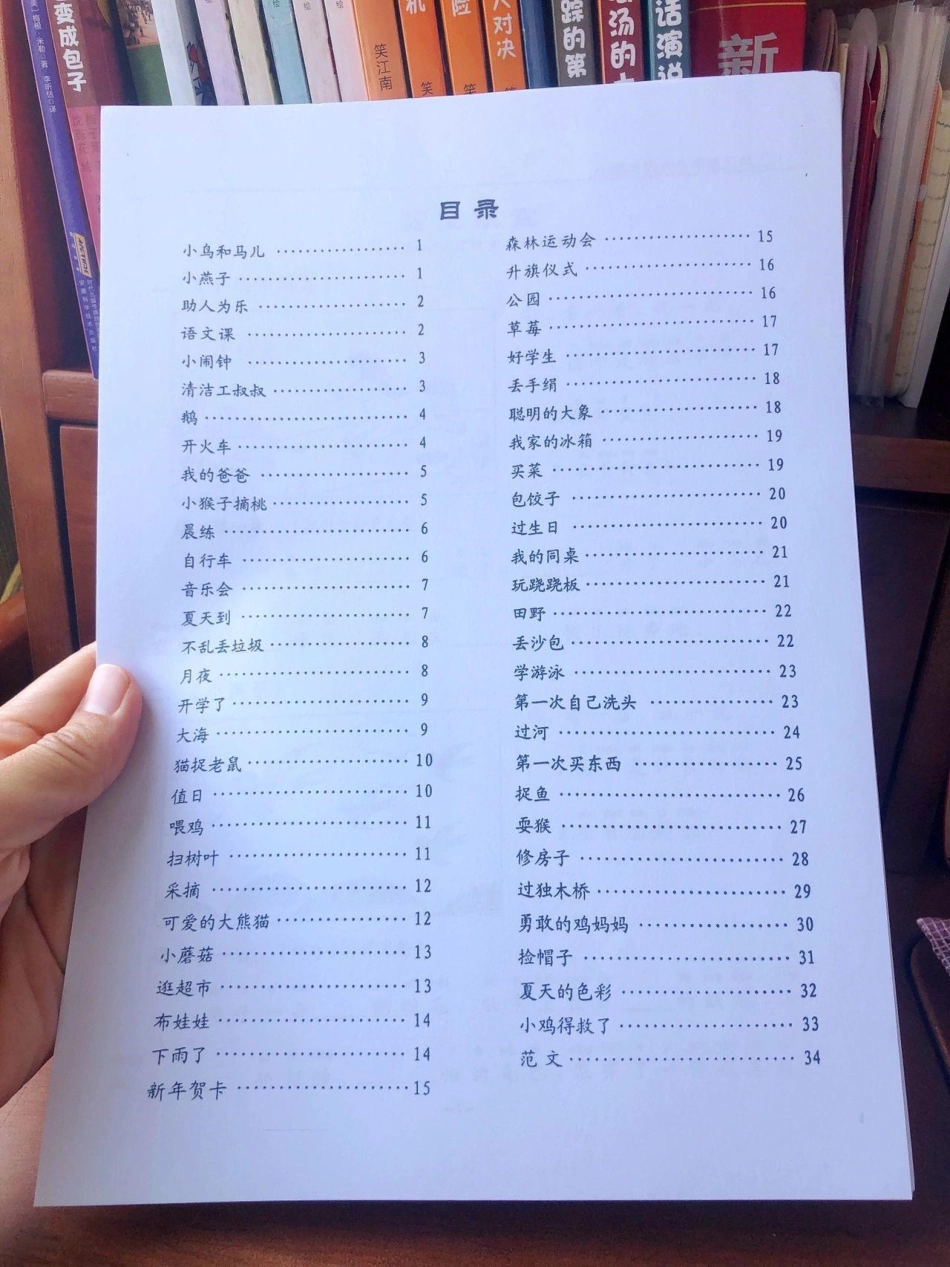 变成包子
笑江南
机
笑
险
笑
大对决
笑
踪的第
汤的
话演说
新
目录
小鸟和马儿 ………………… 1
小燕子 ………………… 1
助人为乐 ………………… 2
语文课 ………………… 2
小闹钟 ………………… 3
清洁工叔叔 ………………… 3
鹅 ………………… 4
开火车 ………………… 4
我的爸爸 ………………… 5
小猴子摘桃 ………………… 5
晨练 ………………… 6
自行车 ………………… 6
音乐会 ………………… 7
夏天到 ………………… 7
不乱丢垃圾 ………………… 8
月夜 ………………… 8
开学了 ………………… 9
大海 ………………… 9
猫捉老鼠 ………………… 10
值日 ………………… 10
喂鸡 ………………… 11
扫树叶 ………………… 11
采摘 ………………… 12
可爱的大熊猫 ………………… 12
小蘑菇 ………………… 13
逛超市 ………………… 13
布娃娃 ………………… 14
下雨了 ………………… 14
新年贺卡 ………………… 15
森林运动会 ………………… 15
升旗仪式 ………………… 16
公园 ………………… 16
草莓 ………………… 17
好学生 ………………… 17
丢手绢 ………………… 18
聪明的大象 ………………… 18
我家的冰箱 ………………… 19
买菜 ………………… 19
包饺子 ………………… 20
过生日 ………………… 20
我的同桌 ………………… 21
玩跷跷板 ………………… 21
田野 ………………… 22
丢沙包 ………………… 22
学游泳 ………………… 23
第一次自己洗头 ………………… 23
过河 ………………… 24
第一次买东西 ………………… 25
捉鱼 ………………… 26
耍猴 ………………… 27
修房子 ………………… 28
过独木桥 ………………… 29
勇敢的鸡妈妈 ………………… 30
捡帽子 ………………… 31
夏天的色彩 ………………… 32
小鸡得救了 ………………… 33
范文 ………………… 34